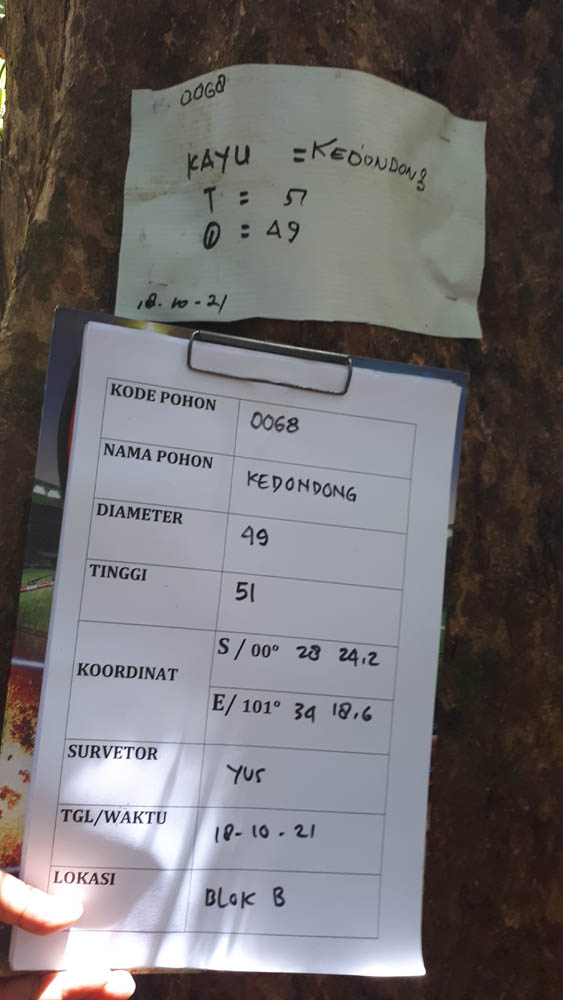 0068
KAYU = KEDONDONG
T = 51
Ⓓ = 49
18-10-21
KODE POHON 0068
NAMA POHON KEDONDONG
DIAMETER 49
TINGGI 51
KOORDINAT
S / 00° 28 24,2
E/ 101° 34 18,6
SURVETOR YUS
TGL/WAKTU 18-10-21
LOKASI BLOK B